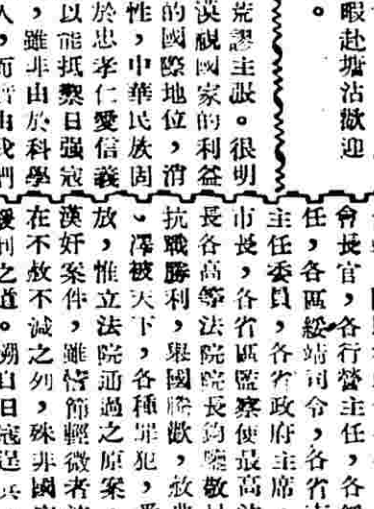 暇赴塘沽歡迎
。
荒謬主張。很明
漠視國家的利益
的國際地位，消
性，中華民族固
於忠孝仁愛信義
以能抵禦日强寇
，雖非由於科學
人，而皆由我們
會長官，各行營主任，各
任，各區綏靖司令，各省
主任委員，各省政府主席，
市長，各省區監察使最高法
長各高等法院院長鈞鑒敬
抗戰勝利，舉國騰歡，赦
、澤被天下，各種罪犯，
放，惟立法院通過之原案，
漢奸案件，雖情節輕微者
在不赦不減之列，殊非國
刑之道。溯自日寇逞兵